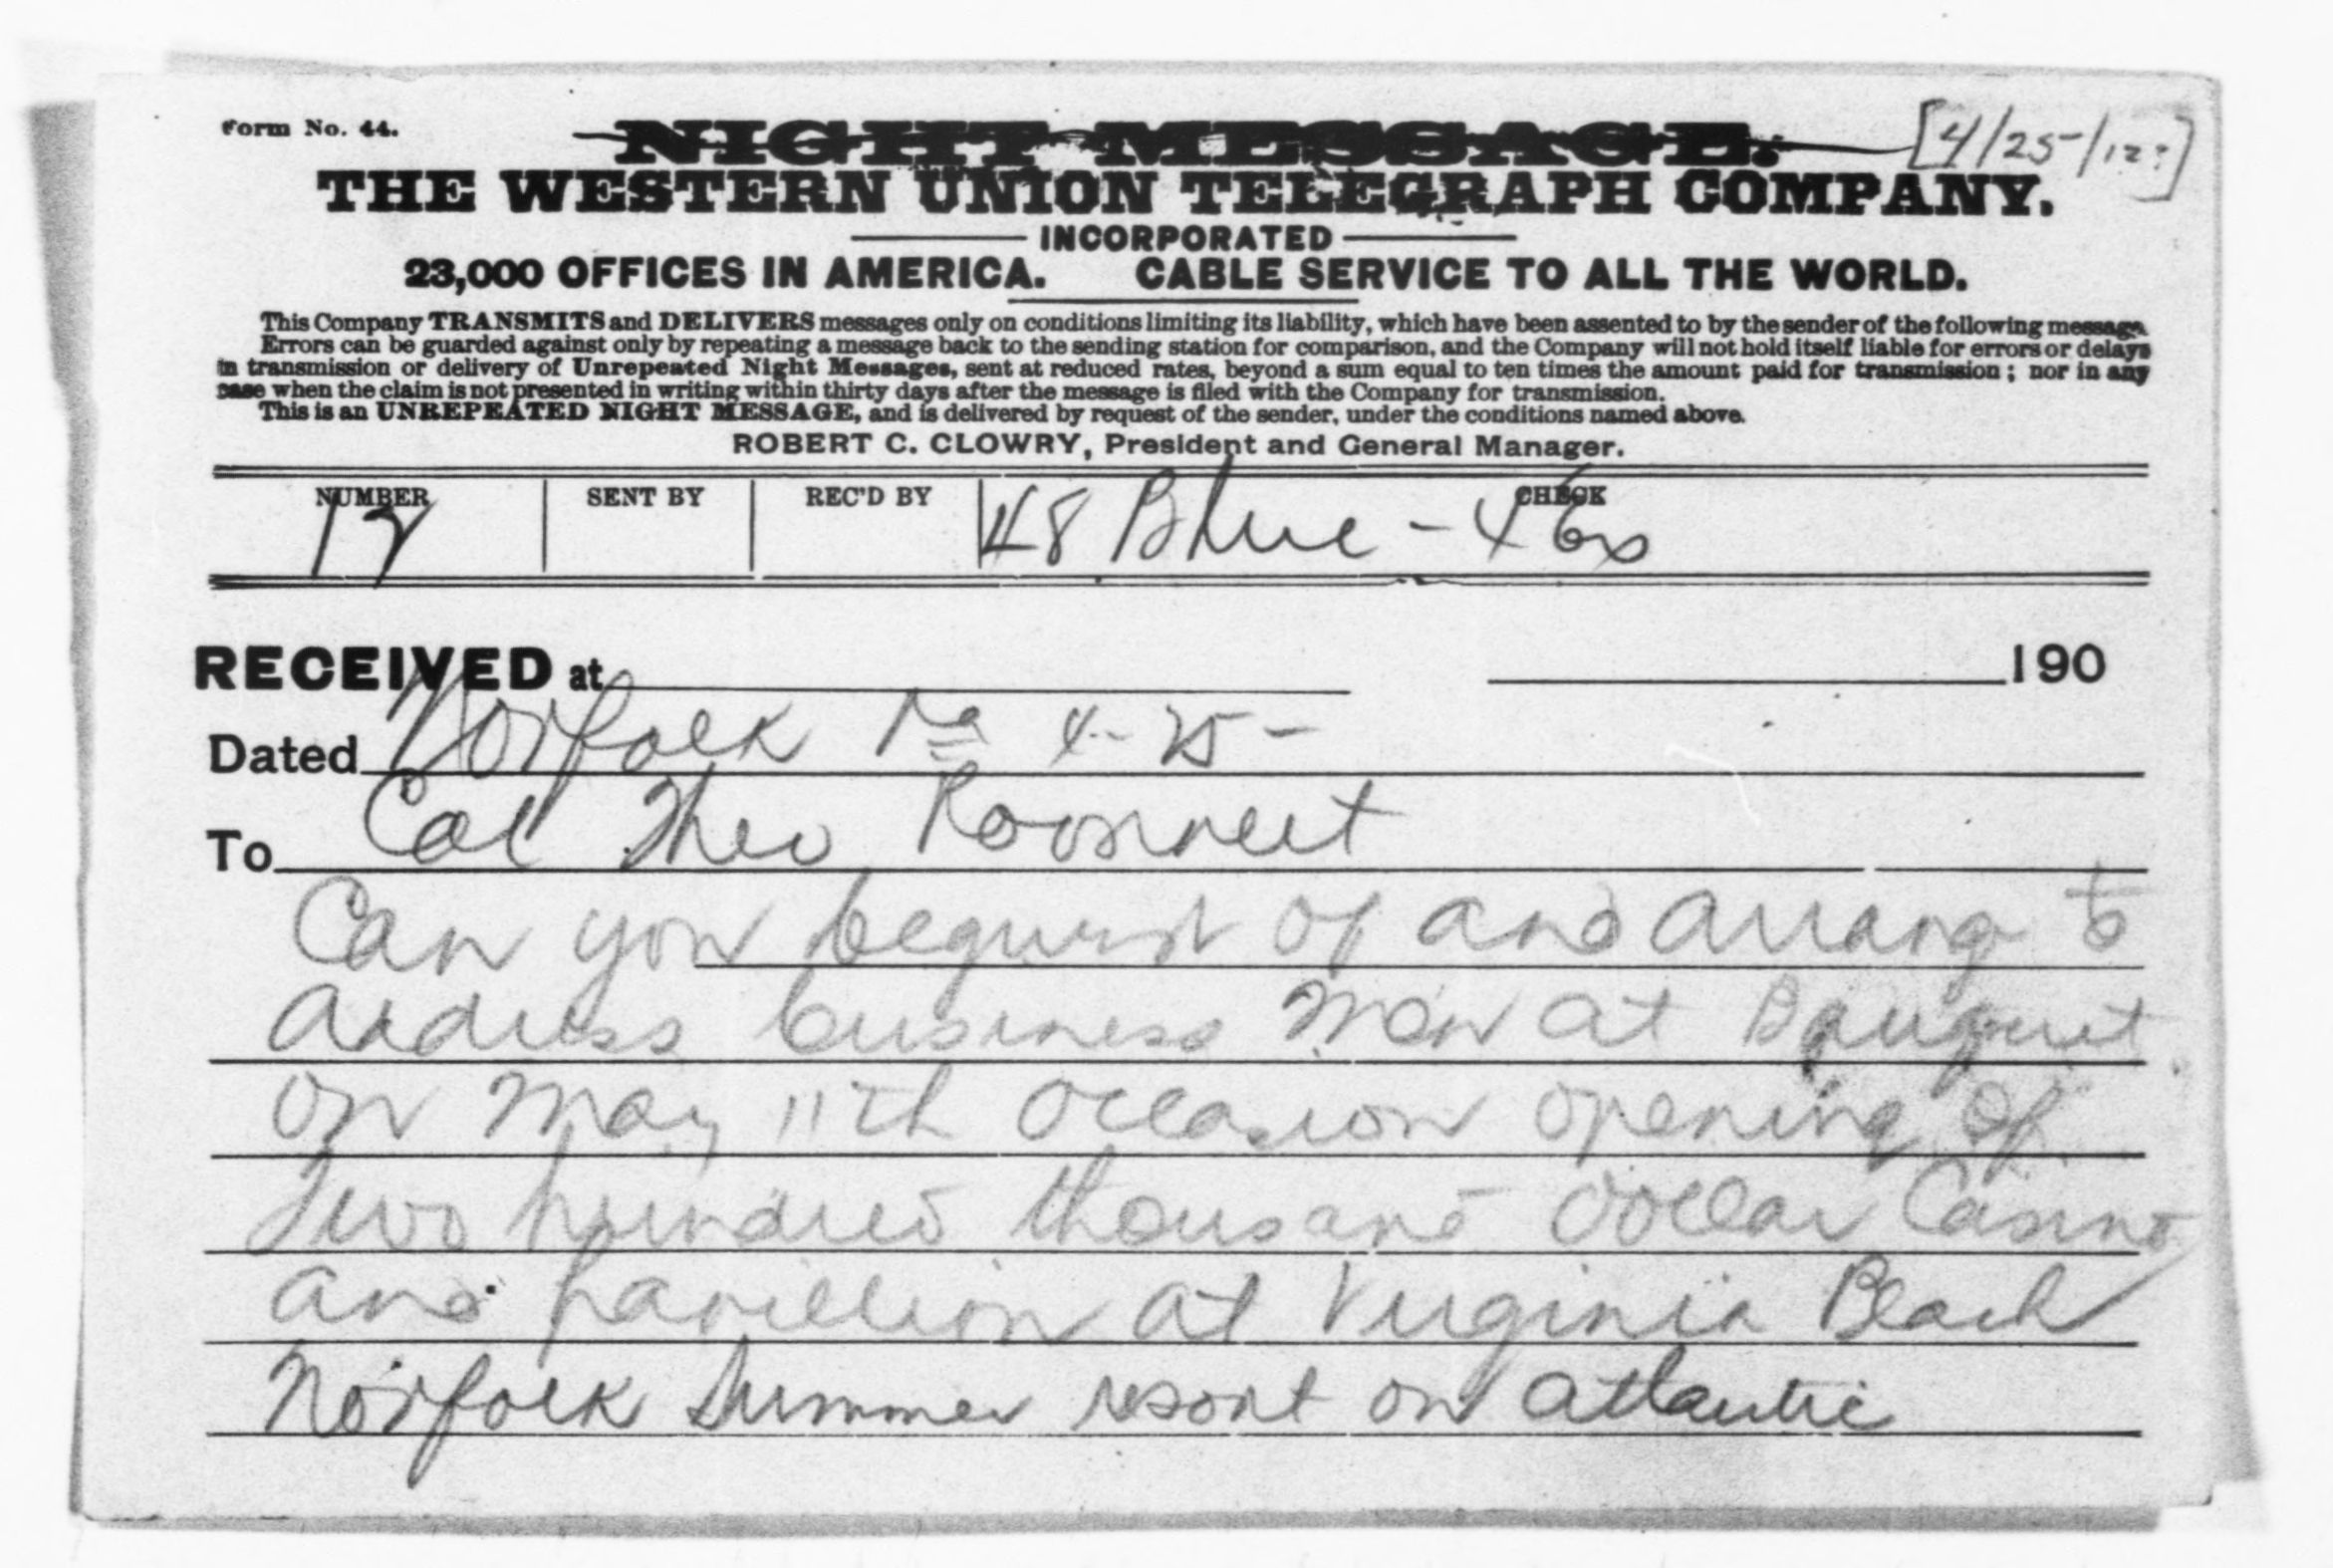 Form No. 44.
NIGHT MESSAGE. [4/25/12?]
THE WESTERN UNION TELEGRAPH COMPANY.
INCORPORATED
23,000 OFFICES IN AMERICA. CABLE SERVICE TO ALL THE WORLD.
This Company TRANSMITS and DELIVERS messages only on conditions limiting its liability, which have been assented to by the sender of the following message.
Errors can be guarded against only by repeating a message back to the sending station for comparison, and the Company will not hold itself liable for errors or delays
in transmission or delivery of Unrepeated Night Messages, sent at reduced rates, beyond a sum equal to ten times the amount paid for transmission; nor in any
case when the claim is not presented in writing within thirty days after the message is filed with the Company for transmission.
This is an UNREPEATED NIGHT MESSAGE, and is delivered by request of the sender, under the conditions named above.
ROBERT C. CLOWRY, President and General Manager.
NUMBER SENT BY REC'D BY CHECK
12 48 Blue -
RECEIVED at 190
Dated Norfolk Va 4-25-
To Col Theo Roosevelt
Can you of and arrang to
address business men at Banquet
on May 11th occasion opening of
Two hundred thousand dollar Casino
and pavillion at Virginia Beach
Norfolk summer resort on atlantic